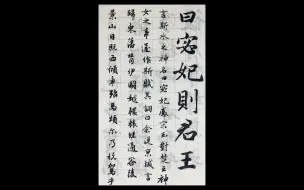 曰宓妃則君王
言斯水之神名曰宓妃感宋玉對楚王神
女之事遂作斯賦其詞曰余從京域言
歸東藩背伊闕越轘轅經通谷陵
景山日既西傾車殆馬煩尔乃税駕乎